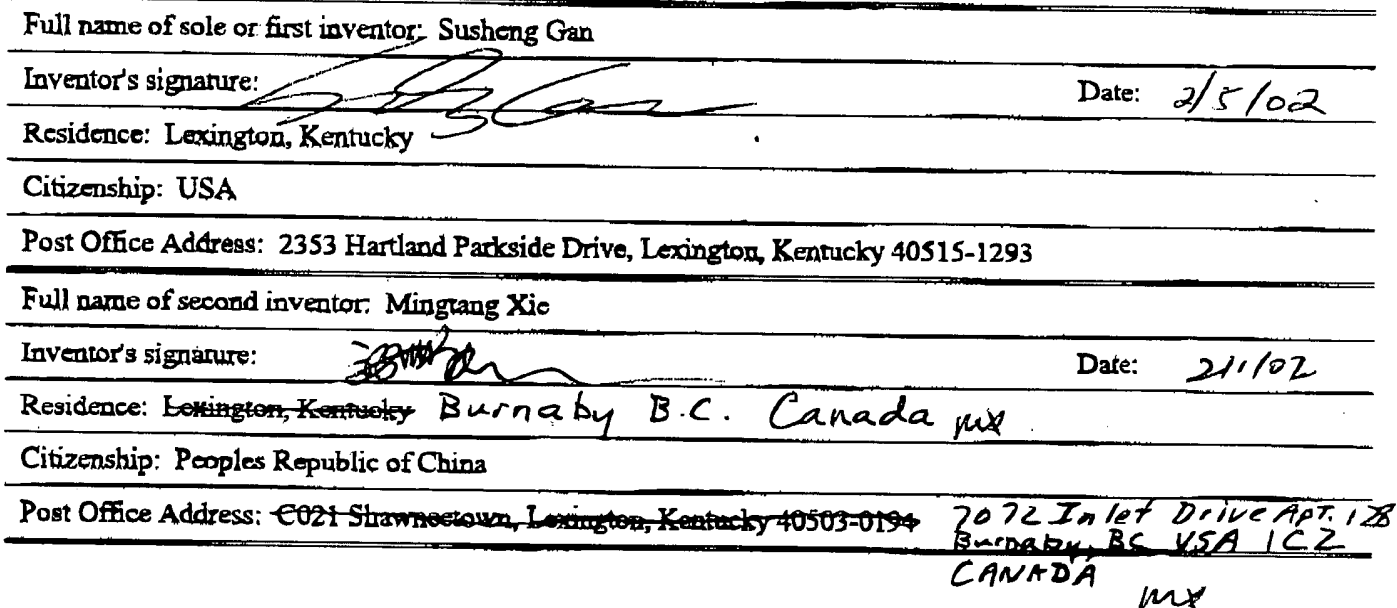 Full name of sole or first inventor: Susheng Gan
Inventor's signature: Date: 2/5/02
Residence: Lexington, Kentucky
Citizenship: USA
Post Office Address: 2353 Hartland Parkside Drive, Lexington, Kentucky 40515-1293
Full name of second inventor: Mingtang Xie
Inventor's signature: Date: 2/1/02
Residence: Lexington, Kentucky Burnaby B.C. Canada mx
Citizenship: Peoples Republic of China
Post Office Address: C021 Shawneetown, Lexington, Kentucky 40503-0194 7072 Inlet Drive Apt.
Burnaby, BC V5A 1C2
CANADA
mx